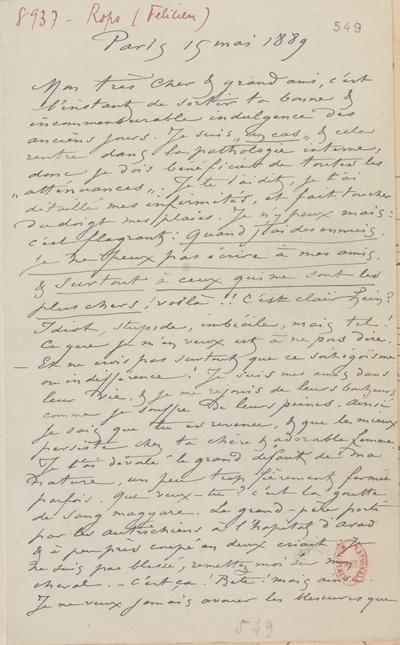 8937 - Rops (Félicien)
549
Paris 15 mai 1889
Mon très cher & grand ami, c'est
l'instant de sortir ta bonne &
incommensurable indulgence des
anciens jours. Je suis „un cas„ & cela
rentre dans la pathologie interne,
donc je dois bénéficier de toutes les
„attenuances„. Je te l'ai dit, je t'ai
détaillé mes infirmités, et fait toucher
du doigt mes plaies. Je n'y peux mais:
c'est flagrant: Quand j'ai des ennuis,
je ne peux pas écrire à mes amis,
& surtout à ceux qui me sont les
plus chers, voilà!! C'est clair hein?
Idiot, stupide, imbécile, mais tel.
Ce que je m'en veux est à ne pas dire.
— Et ne crois pas surtout que ce soit égoïsme
ou indifférence! Je suis mes amis dans
leur vie, & je me réjouis de leurs bonheurs
comme je souffre de leurs peines. Ainsi
je sais que tu es revenu, & que le mieux
persiste chez ta chère & adorable femme.
Je t'ai dévoilé le grand défaut de ma
nature, un peu trop fièrement fermée
parfois. Que veux-tu? c'est la goutte
de sang magyare. Le grand-père porté
par les autrichiens à l'hôpital d'Arad
& à peu près coupé en deux criait: Je
ne suis pas blessé, remettez moi sur mon
cheval. — C'est ça! Bête! mais ainsi.
Je ne veux jamais avouer les blessures que
549